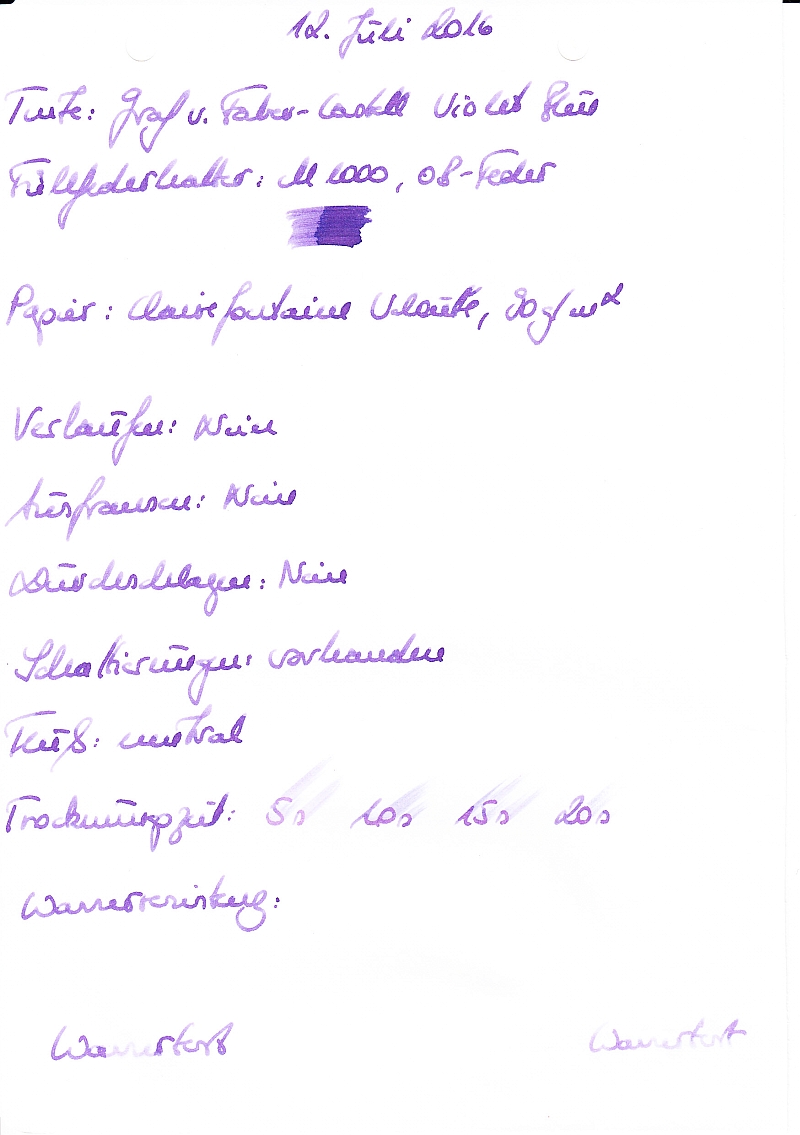 12. Juli 2016
Tinte: Graf v. Faber-Castell Violet Blue
Füllfederhalter: M 1000, OB-Feder
Papier: Clairefontaine Velouté, 90 g/m²
Verlaufen: Nein
Ausfransen: Nein
Durchschlagen: Nein
Schattierungen: vorhanden
Fluß: neutral
Trocknungszeit: 5s 10s 15s 20s
Wasserresistenz:
Wassertest Wassertest